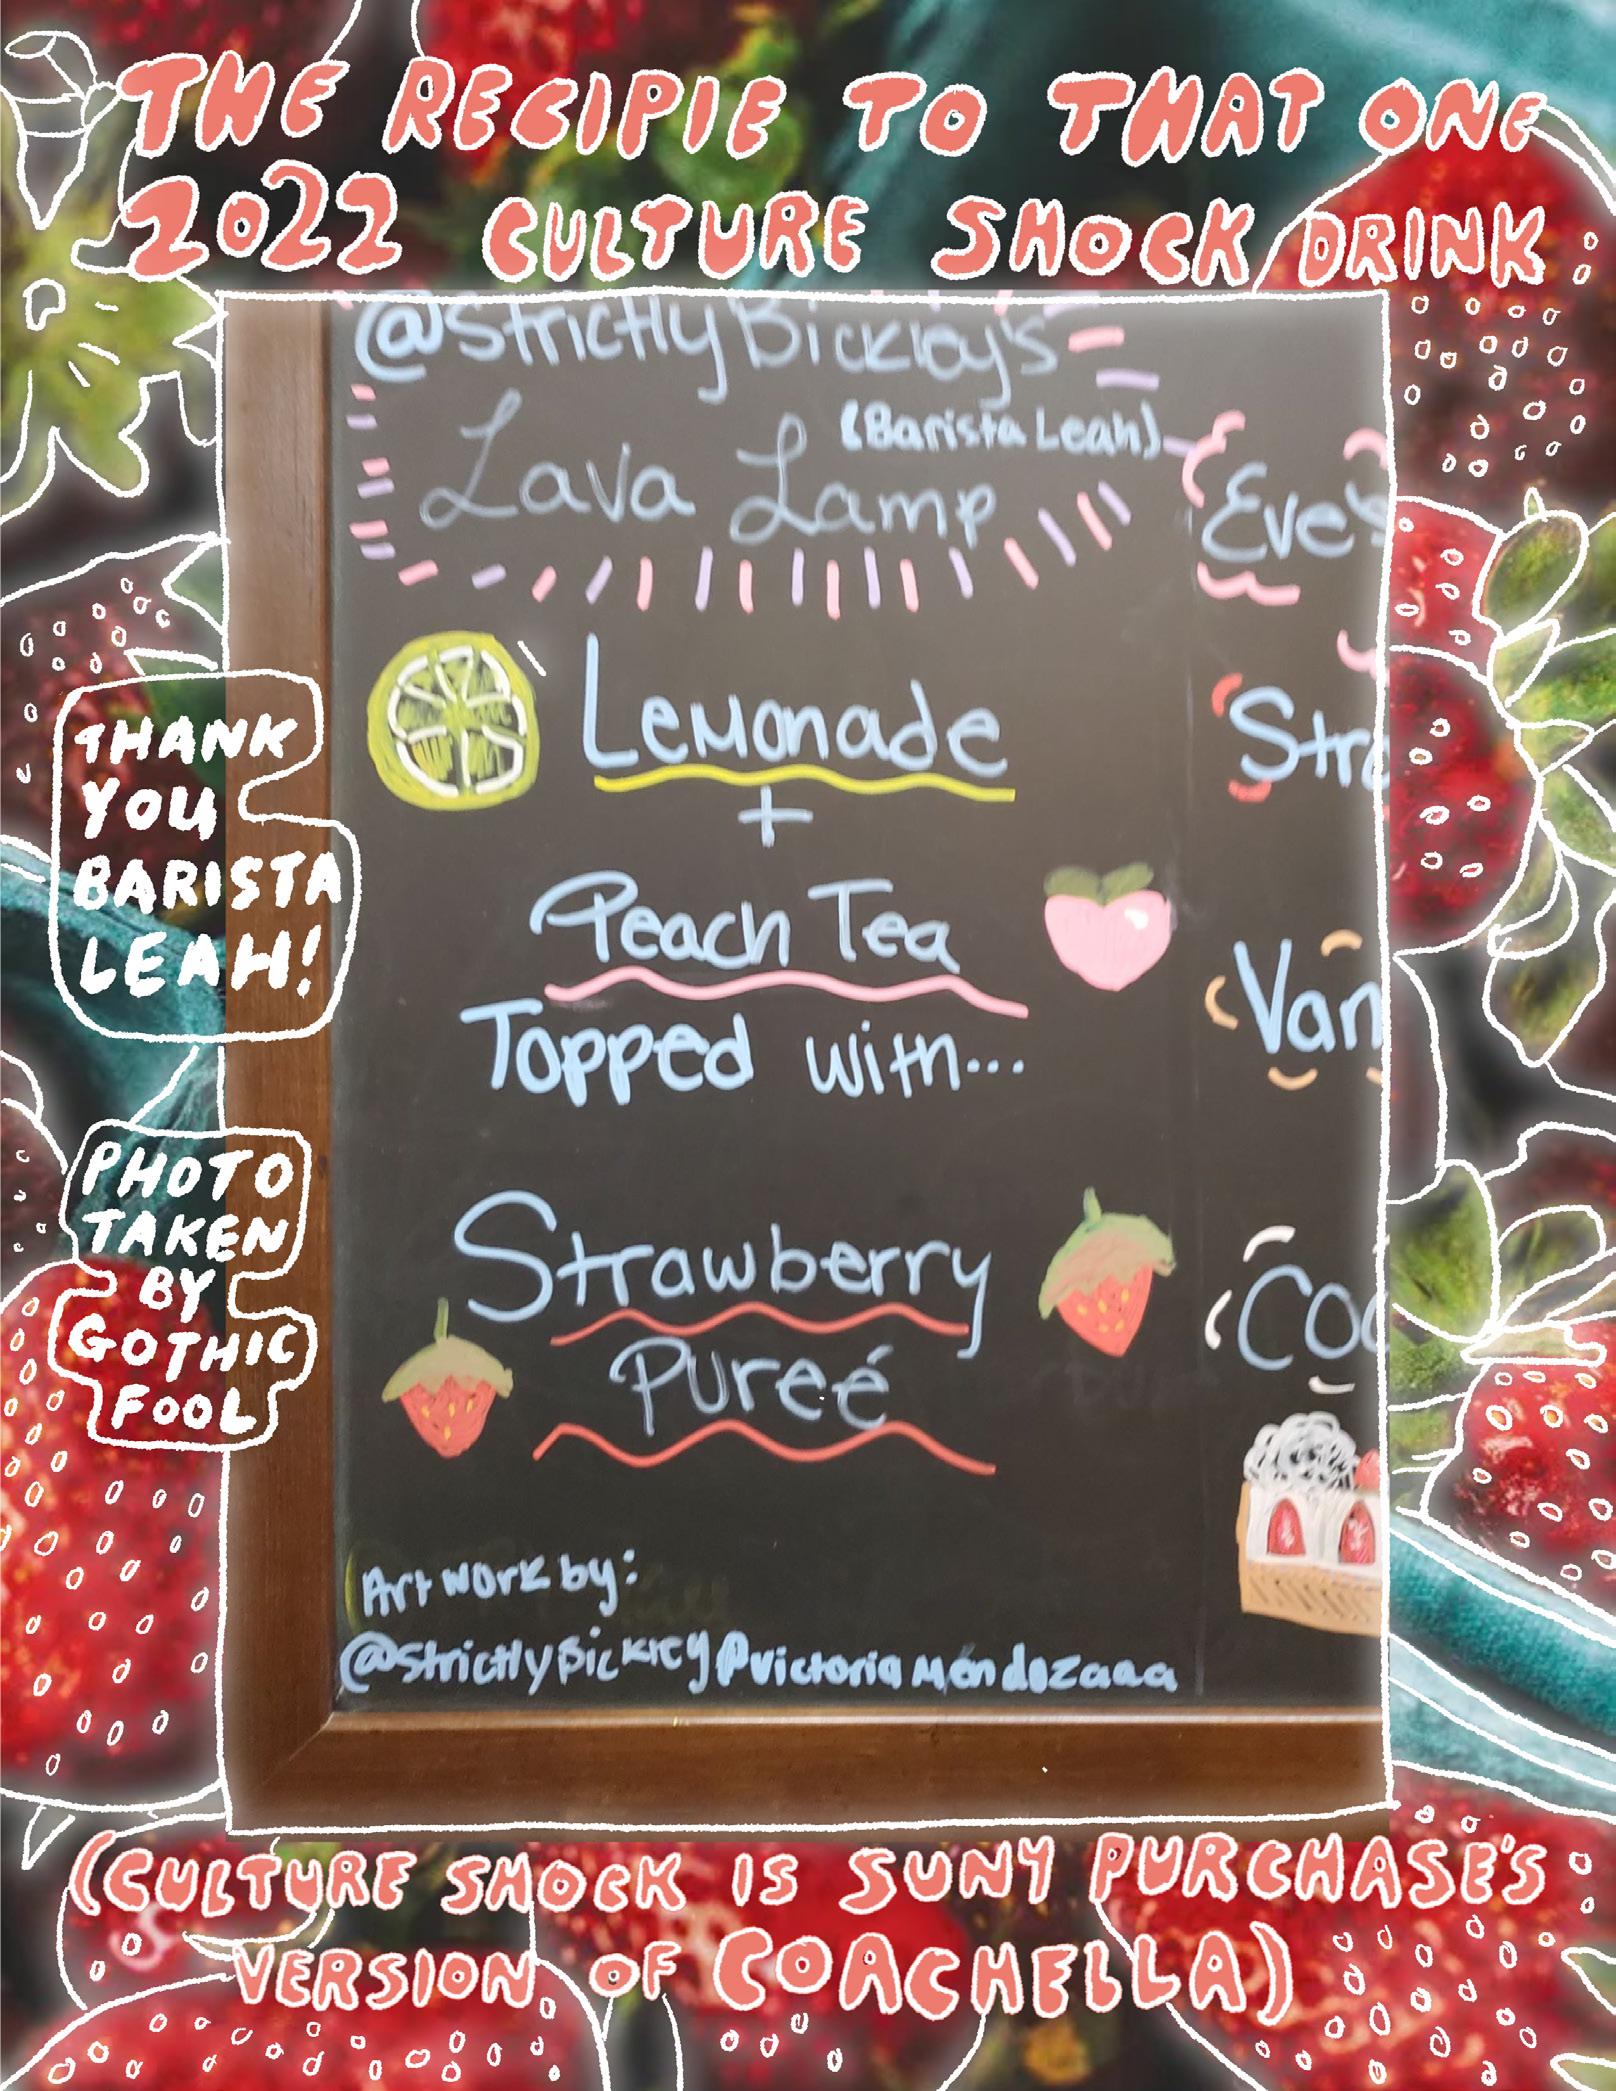 THE RECIPIE TO THAT ONE
2022 CULTURE SHOCK DRINK
@StrictlyBickley's
(Barista Leah)
Lava Lamp
Lemonade
+
Peach Tea
Topped with...
Strawberry
Pureé
Artwork by:
@StrictlyBickley @victoriaMéndozaaa
Eve's
Str
Van
Coc
THANK
YOU
BARISTA
LEAH!
PHOTO
TAKEN
BY
GOTHIC
FOOL
(CULTURE SHOCK IS SUNY PURCHASE'S
VERSION OF COACHELLA)